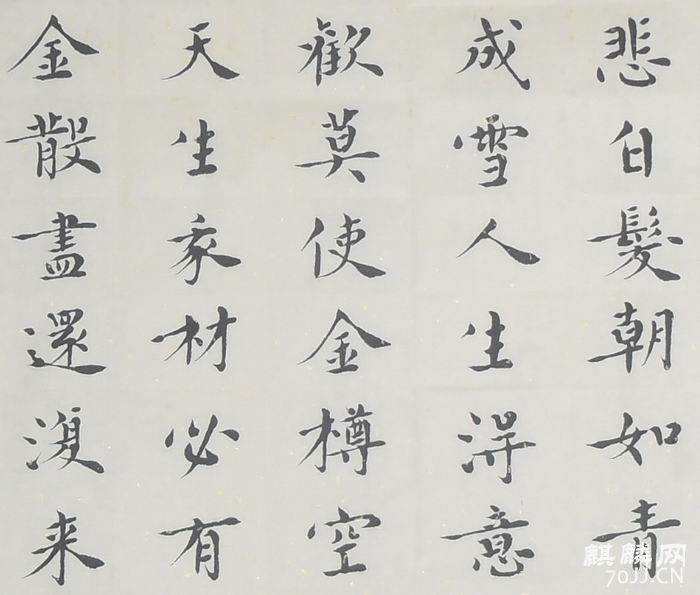 悲白髮朝如青
成雪人生得意
歡莫使金樽空
天生我材必有
金散盡還復来
麒麟网
70JJ.CN